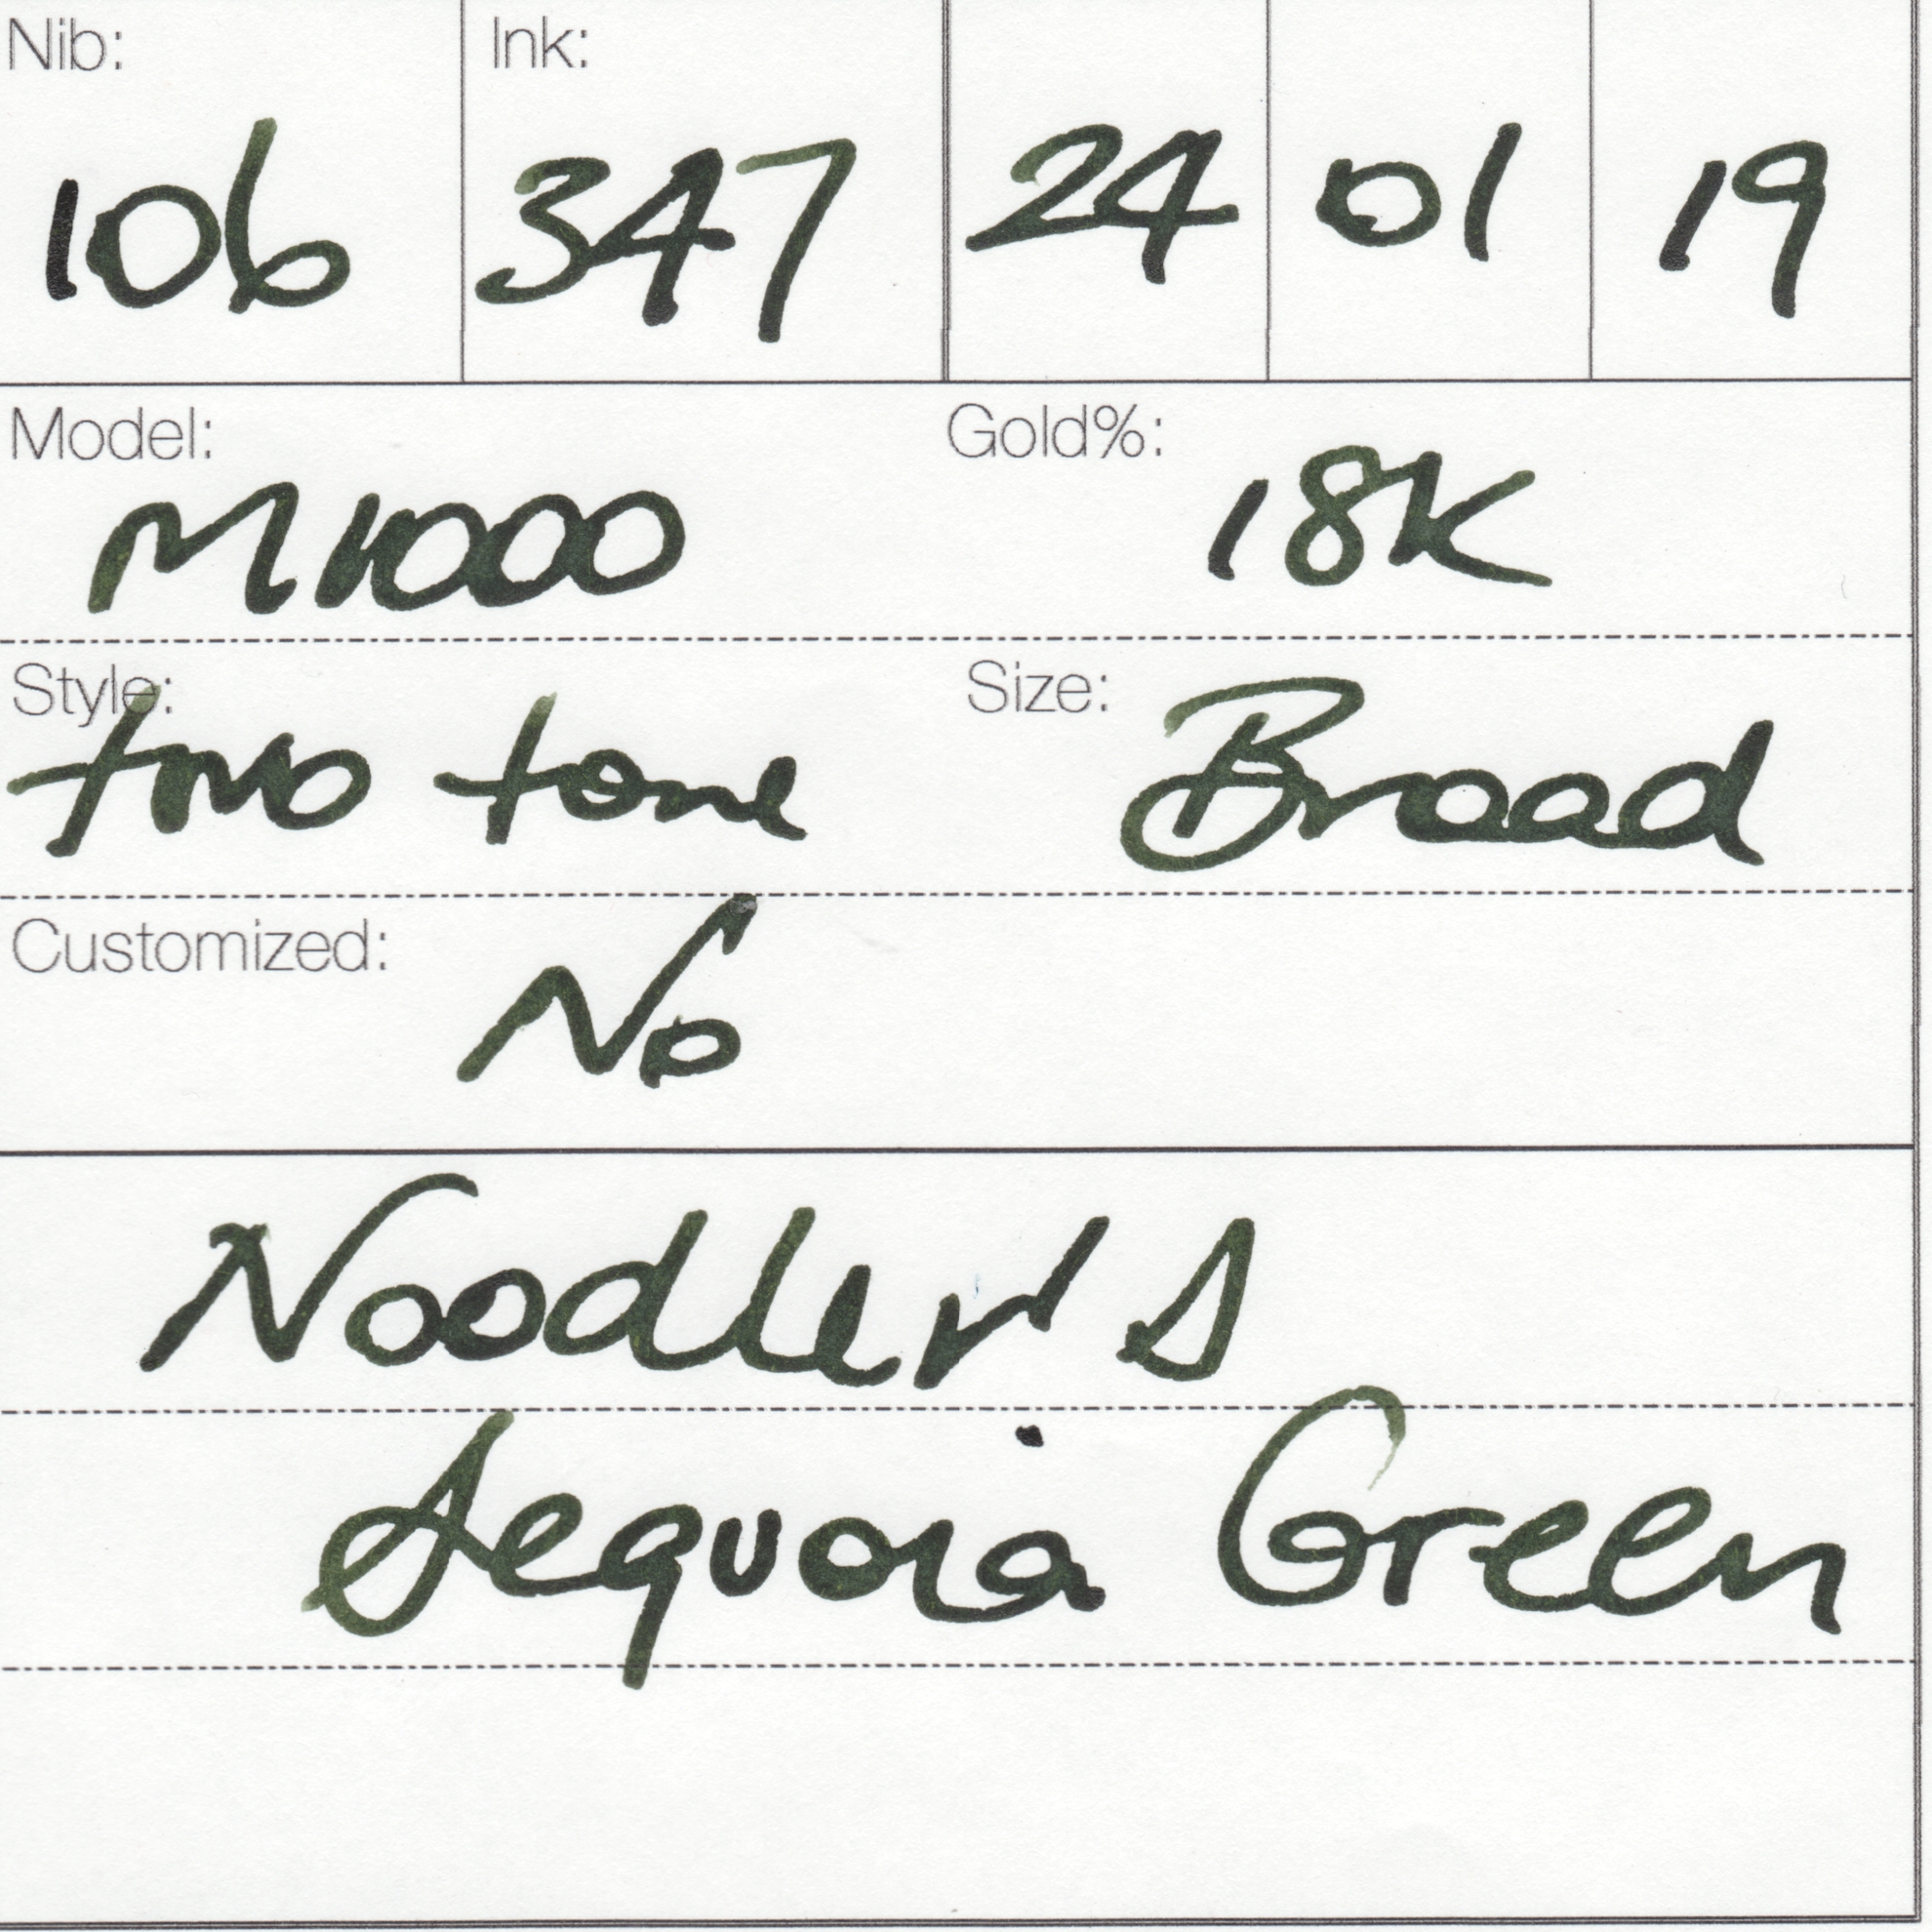 Nib: Ink:
106 347 24 01 19
Model: Gold%:
M1000 18K
Style: Size:
two tone Broad
Customized: No
Noodler's
Sequoia Green